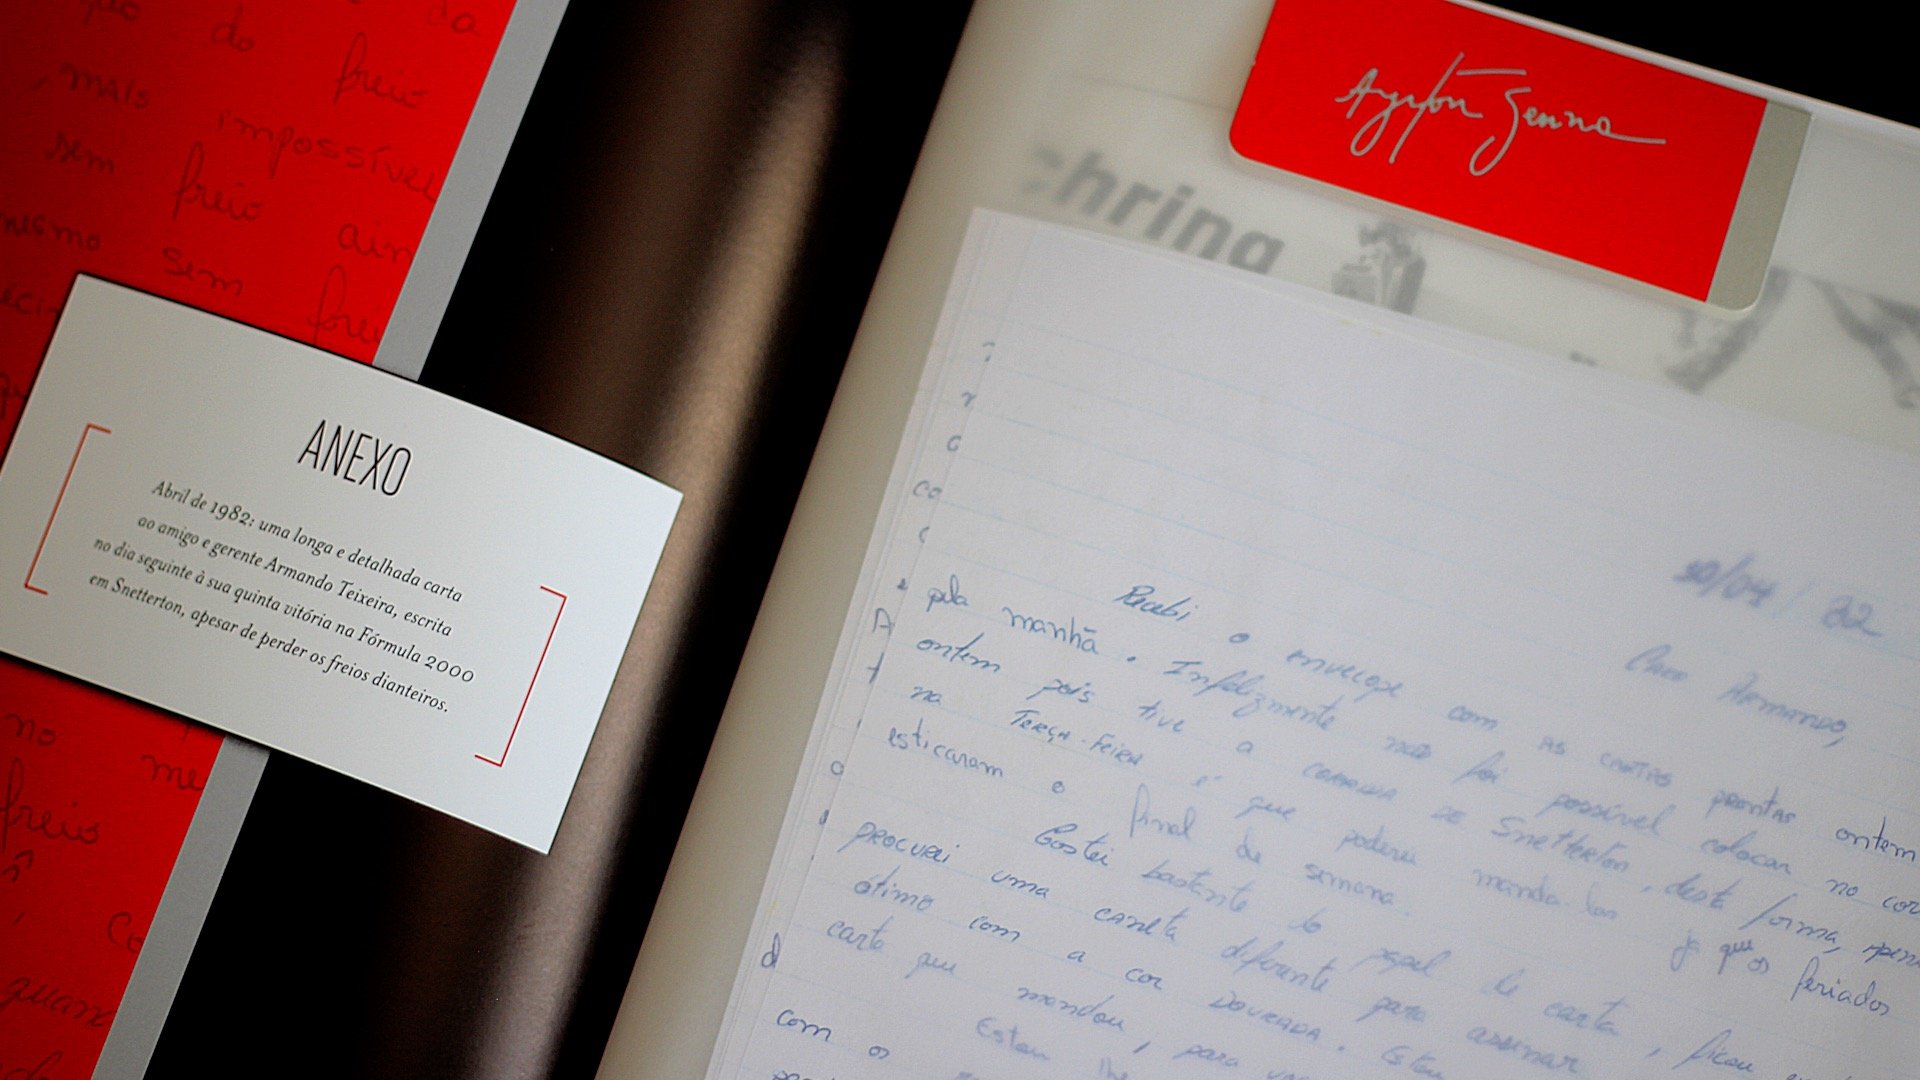 do freio
, mais impossível
sem freio ain
mesmo sem freio
ANEXO
Abril de 1982: uma longa e detalhada carta
ao amigo e gerente Armando Teixeira, escrita
no dia seguinte à sua quinta vitória na Fórmula 2000
em Snetterton, apesar de perder os freios dianteiros.
no me
freio
co
quand
Ayrton Senna
hring
Caro Armando,
Recebi o envelope com as cartas prontas ontem
pela manhã. Infelizmente não foi possível colocar no cor
ontem pois tive a corrida de Snetterton, desta forma, apen
na Terça-Feira é que poderei manda-las já que os feriados
esticaram o final de semana.
Gostei bastante do papel de carta, ficou
procurei uma caneta diferente para assinar
ótimo com a cor dourada. Estou
carta que mandou, para
Estou lhe
com os